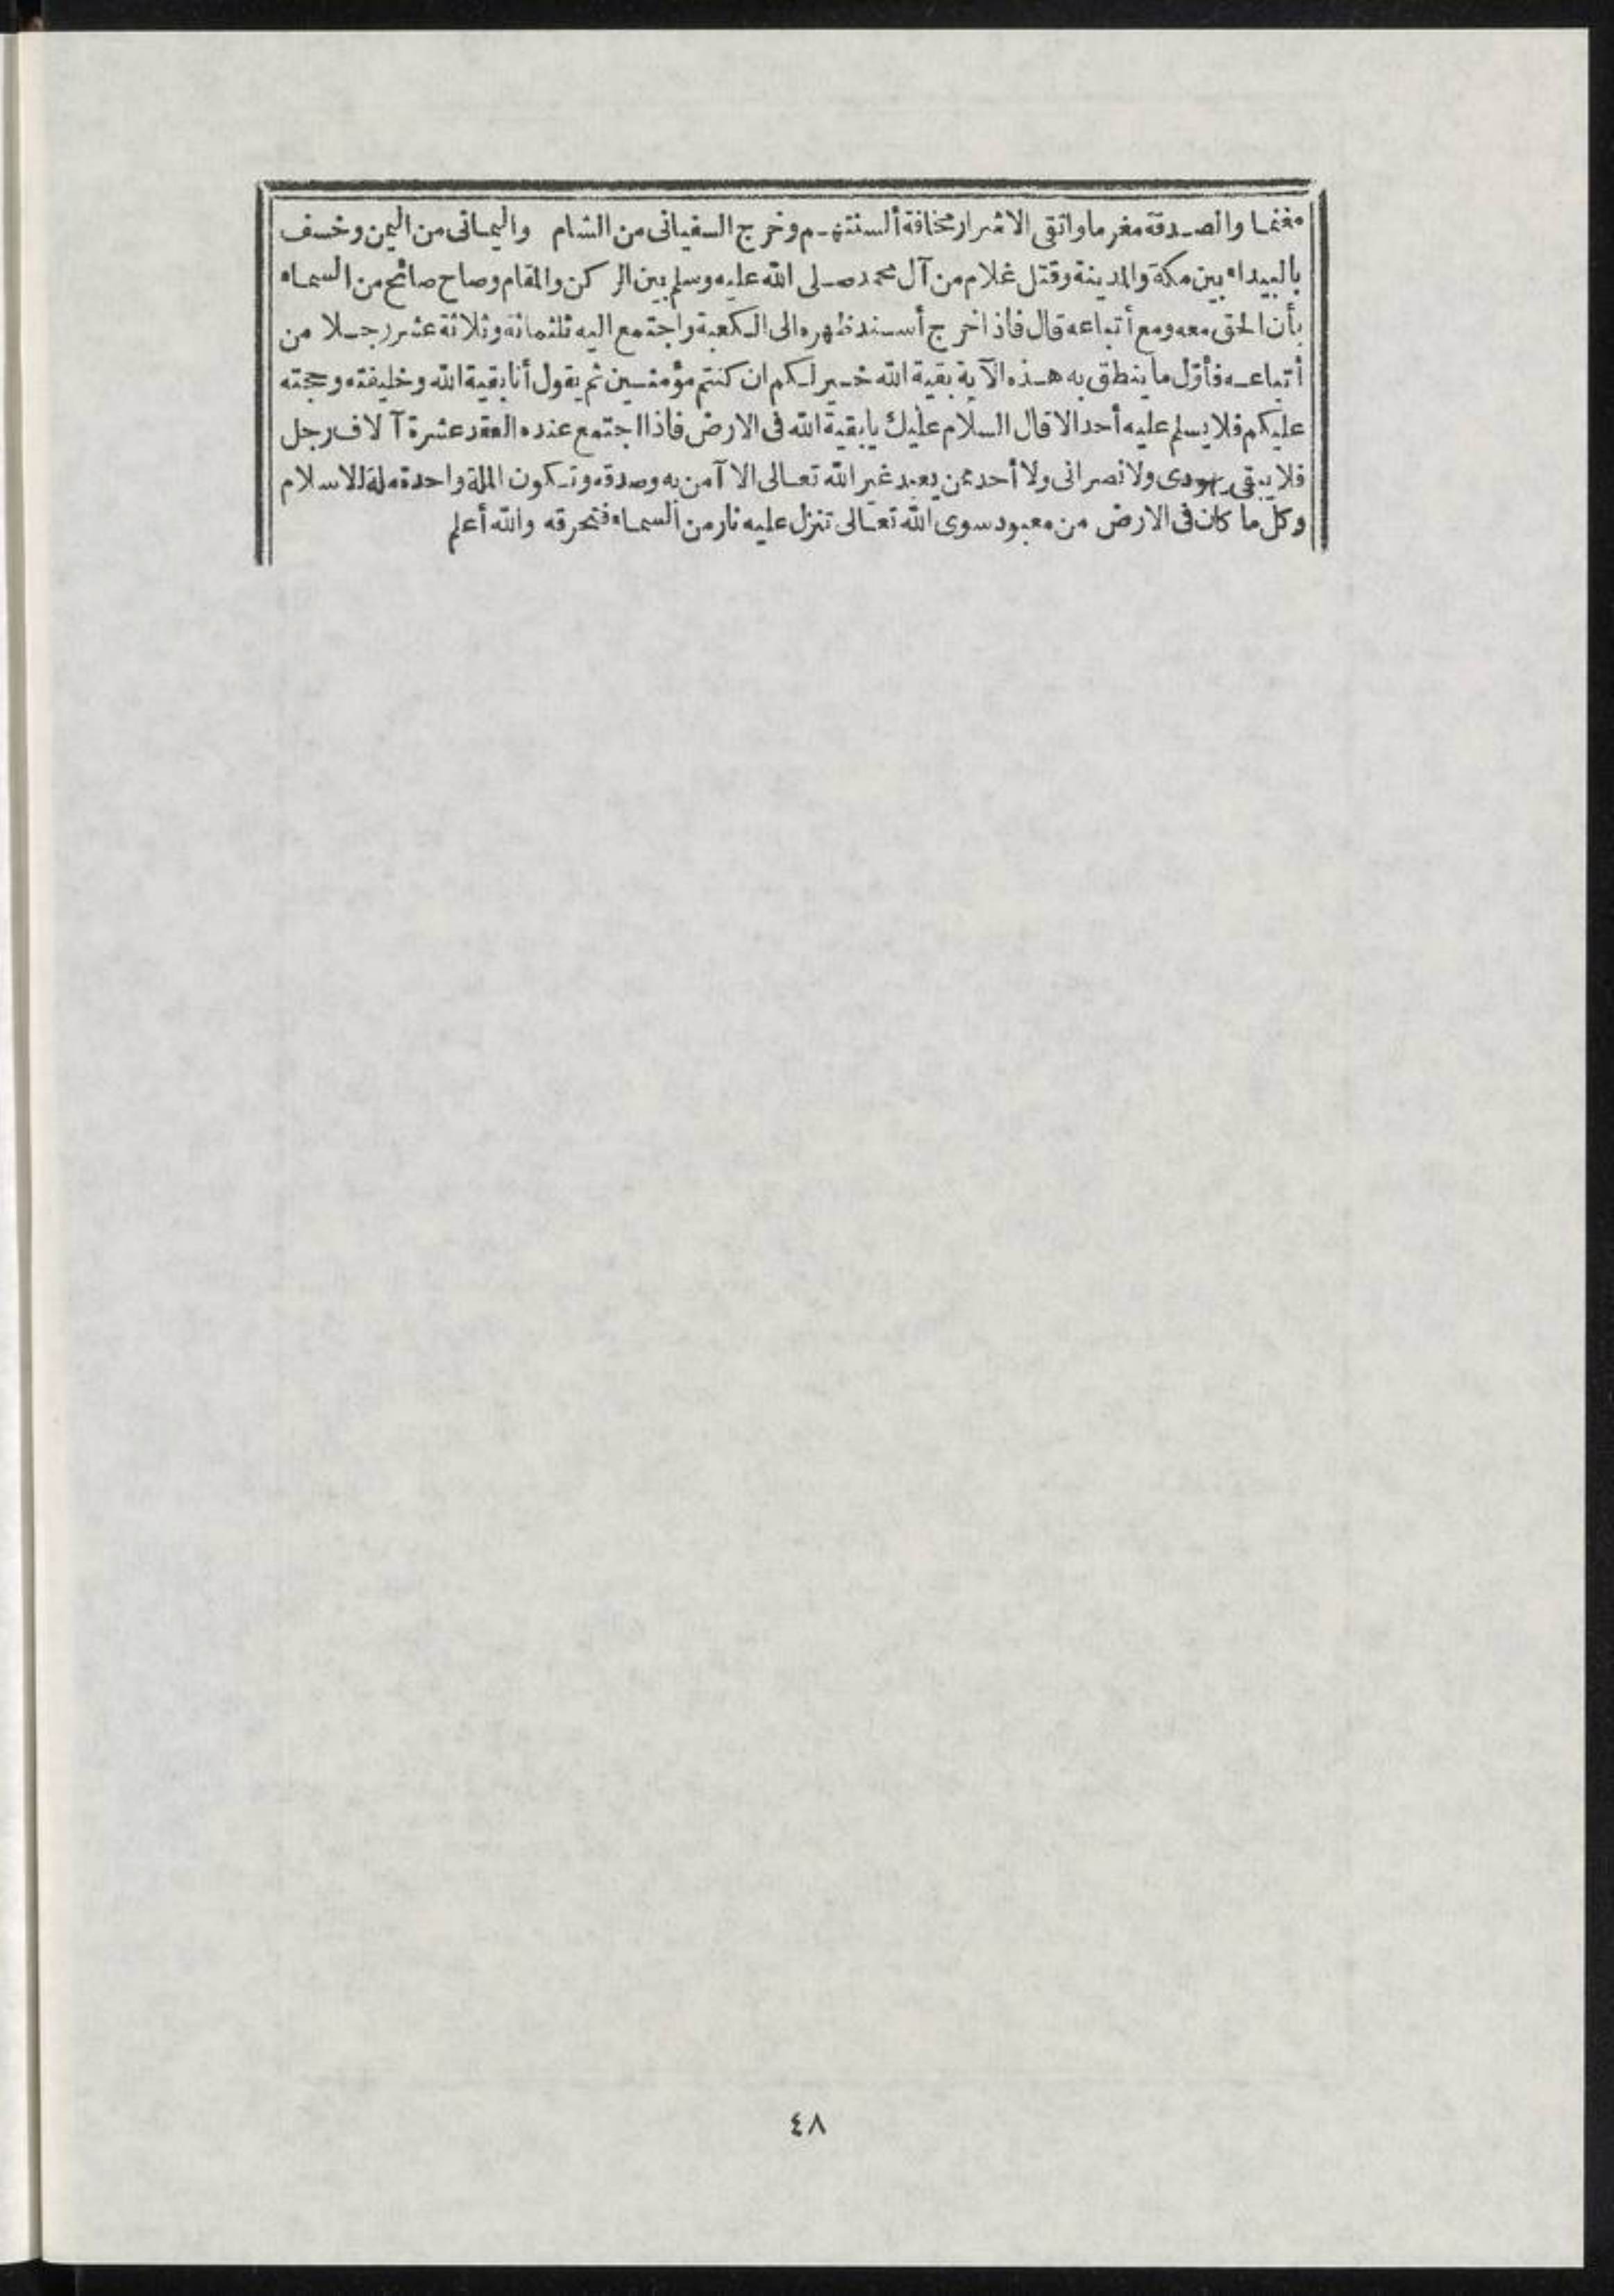 مغنما والصدقة مغرما واتقى الاشرار مخافة ألسنتهم وخرج السفيانى من الشام واليمانى من اليمن وخسف
بالبيداء بين مكة والمدينة وقتل غلام من آل محمد صلى الله عليه وسلم بين الركن والمقام وصاح صائح من السماء
بأن الحق معه ومع أتباعه قال فاذا خرج أسند ظهره الى الكعبة واجتمع اليه ثلثمائة وثلاثة عشر رجلا من
أتباعه فأوّل ما ينطق به هذه الآية بقية الله خير لكم ان كنتم مؤمنين ثم يقول أنا بقية الله وخليفته وحجته
عليكم فلا يسلم عليه أحد الا قال السلام عليك يا بقية الله فى الارض فاذا اجتمع عنده العقد عشرة آلاف رجل
فلا يبقى يهودى ولا نصرانى ولا أحد ممن يعبد غير الله تعالى الا آمن به وصدقه وتكون الملة واحدة ملة الاسلام
وكل ما كان فى الارض من معبود سوى الله تعالى تنزل عليه نار من السماء فتحرقه والله أعلم
٤٨